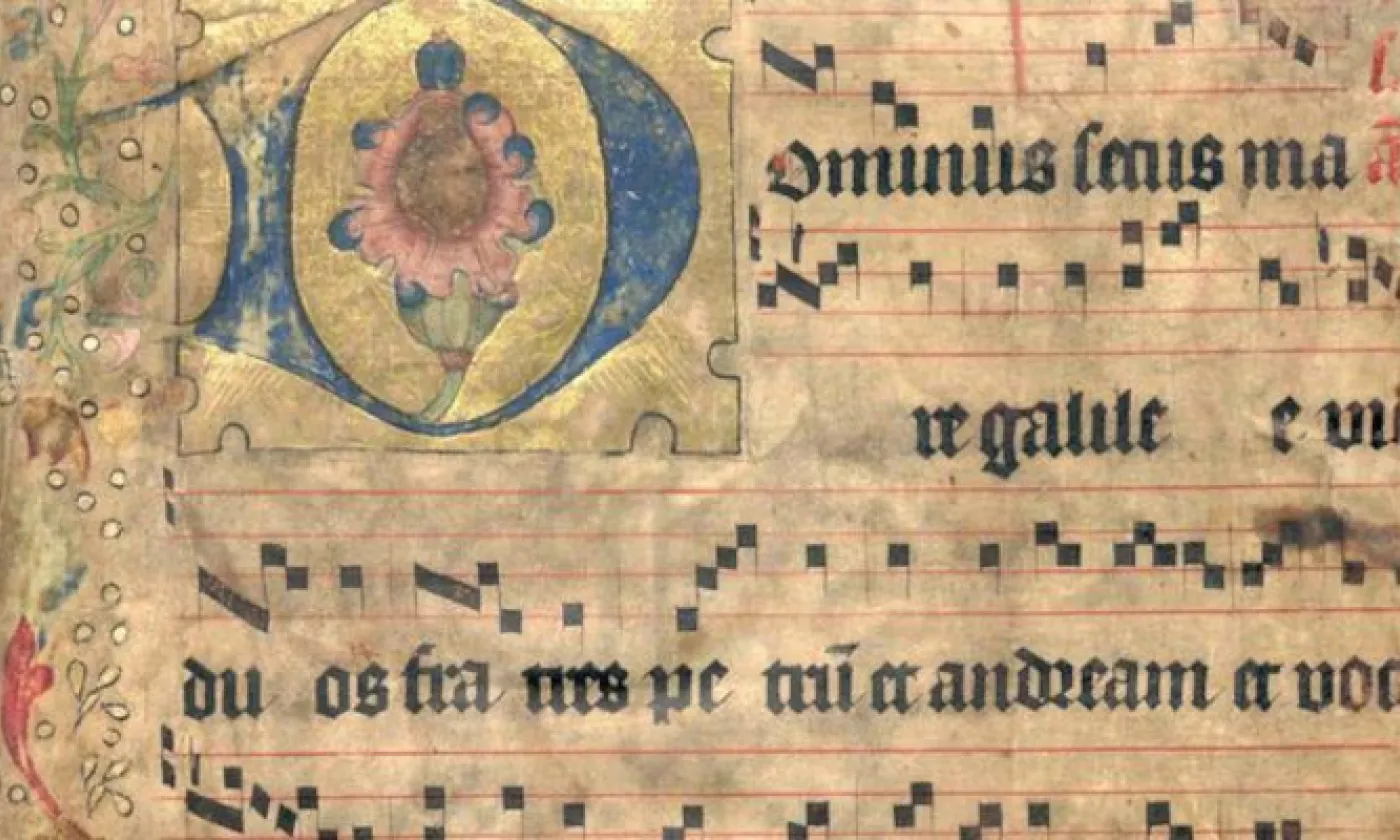 Dominus secus ma
re galile e vi
du os fra tres pe trū et andream et voc